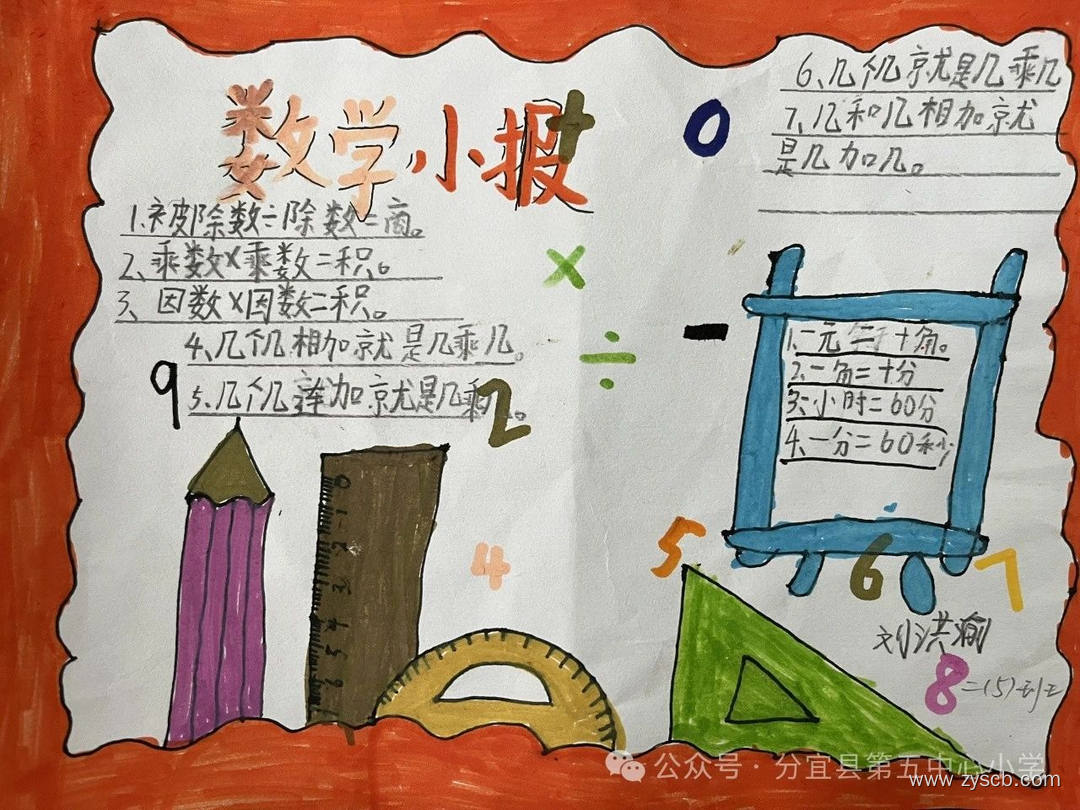 数学小报
+
0
1.被除数÷除数=商。
2、乘数×乘数=积。
3、因数×因数=积。
4、几个几相加就是几乘几。
5、几个几连加就是几乘几。
6、几个几就是几乘几
7、几和几相加就
是几加几。
×
÷
-
9
2
1.一元=十角。
2.一角=十分
3.一小时=60分
4.一分=60秒
0 1 2 3 4 5 6 7
4
5
6
7
刘洪瑜
8
二(5)班
公众号·分宜县第五中心小学
www.zyscb.com